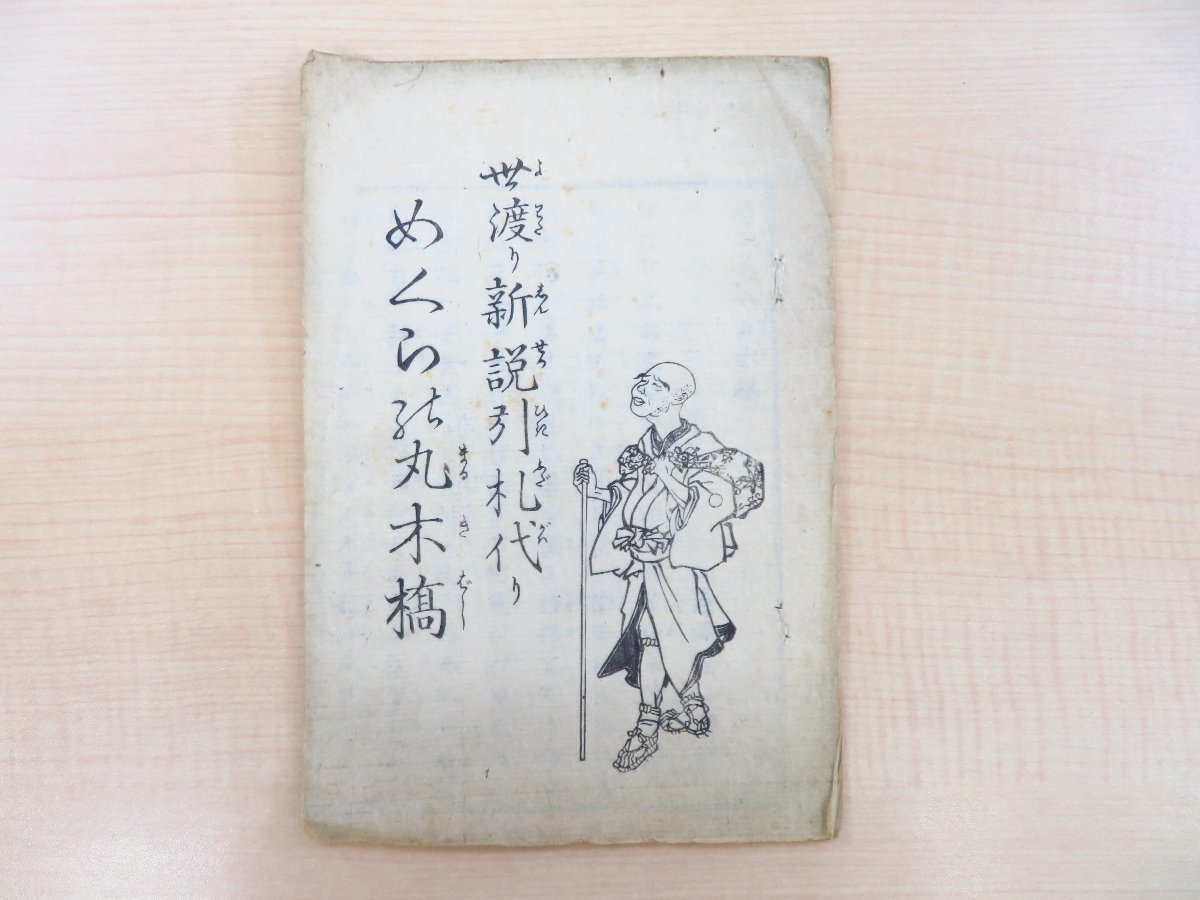 世渡り新説引札代り
めくらの丸木橋